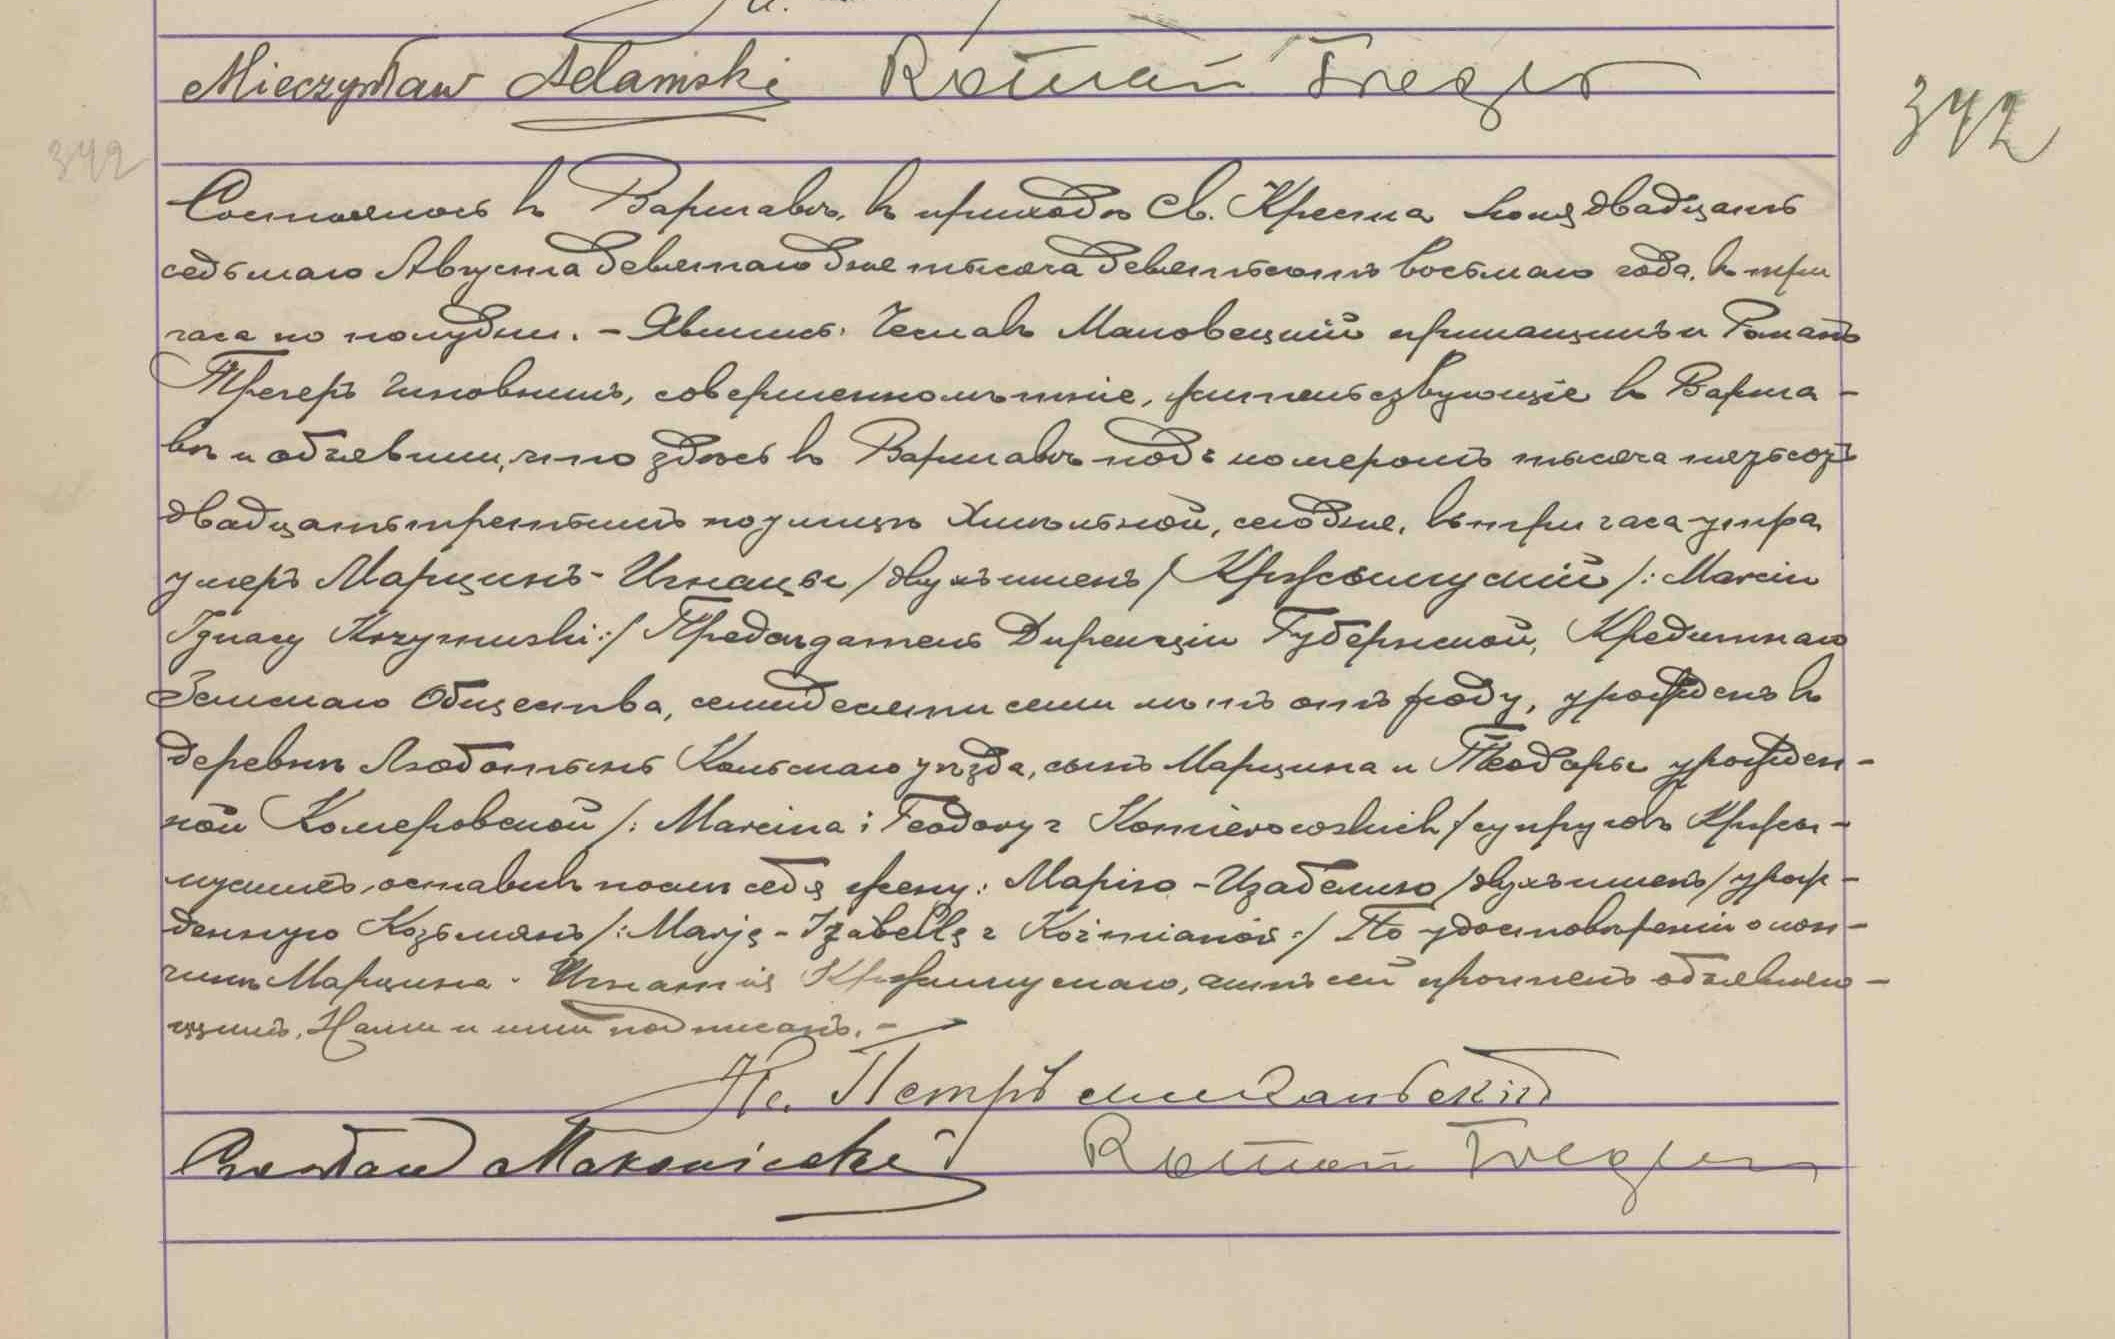 Mieczysław Adamski Roman Treger
342
342
Состоялось въ Варшавѣ, въ приходѣ Св. Креста двадцать
седьмаго Августа девятаго дня тысяча девятьсотъ восьмаго года, въ три
часа по полудни. – Явились: Чеславъ Маковецкій и Романъ
Трегеръ чиновникъ, совершеннолѣтніе, жительствующіе въ Варша-
вѣ и объявили, что здѣсь въ Варшавѣ подъ номеромъ тысяча пятьсотъ
двадцать третьимъ по улицѣ Хмѣльной, сего дня, въ три часа утра
умеръ Марцинъ-Игнацы /двухъ именъ/ Кржимускій /: Marcin
Ignacy Krzymuski :/ Предсѣдатель Дирекціи Губернской, Кредитнаго
Земскаго Общества, семидесяти семи лѣтъ отъ роду, урожденъ въ
деревнѣ Люботынь Кольскаго уѣзда, сынъ Марцина и Теодоры урожден-
ной Комеровской /: Marcina i Teodory z Komierowskich / супруговъ Кржи-
мускихъ, оставивъ послѣ себя жену: Марію-Изабеллю /двухъ именъ/ урож-
денную Козьмянъ /: Marję-Izabellę z Koźmianów :/ По удостовѣреніи о кон-
чинѣ Марцина-Игнатія Кржимускаго, актъ сей прочтенъ объявляю-
щимъ, Нами и ими подписанъ. –
Кс. Петръ
Czesław Makowiecki Roman Treger